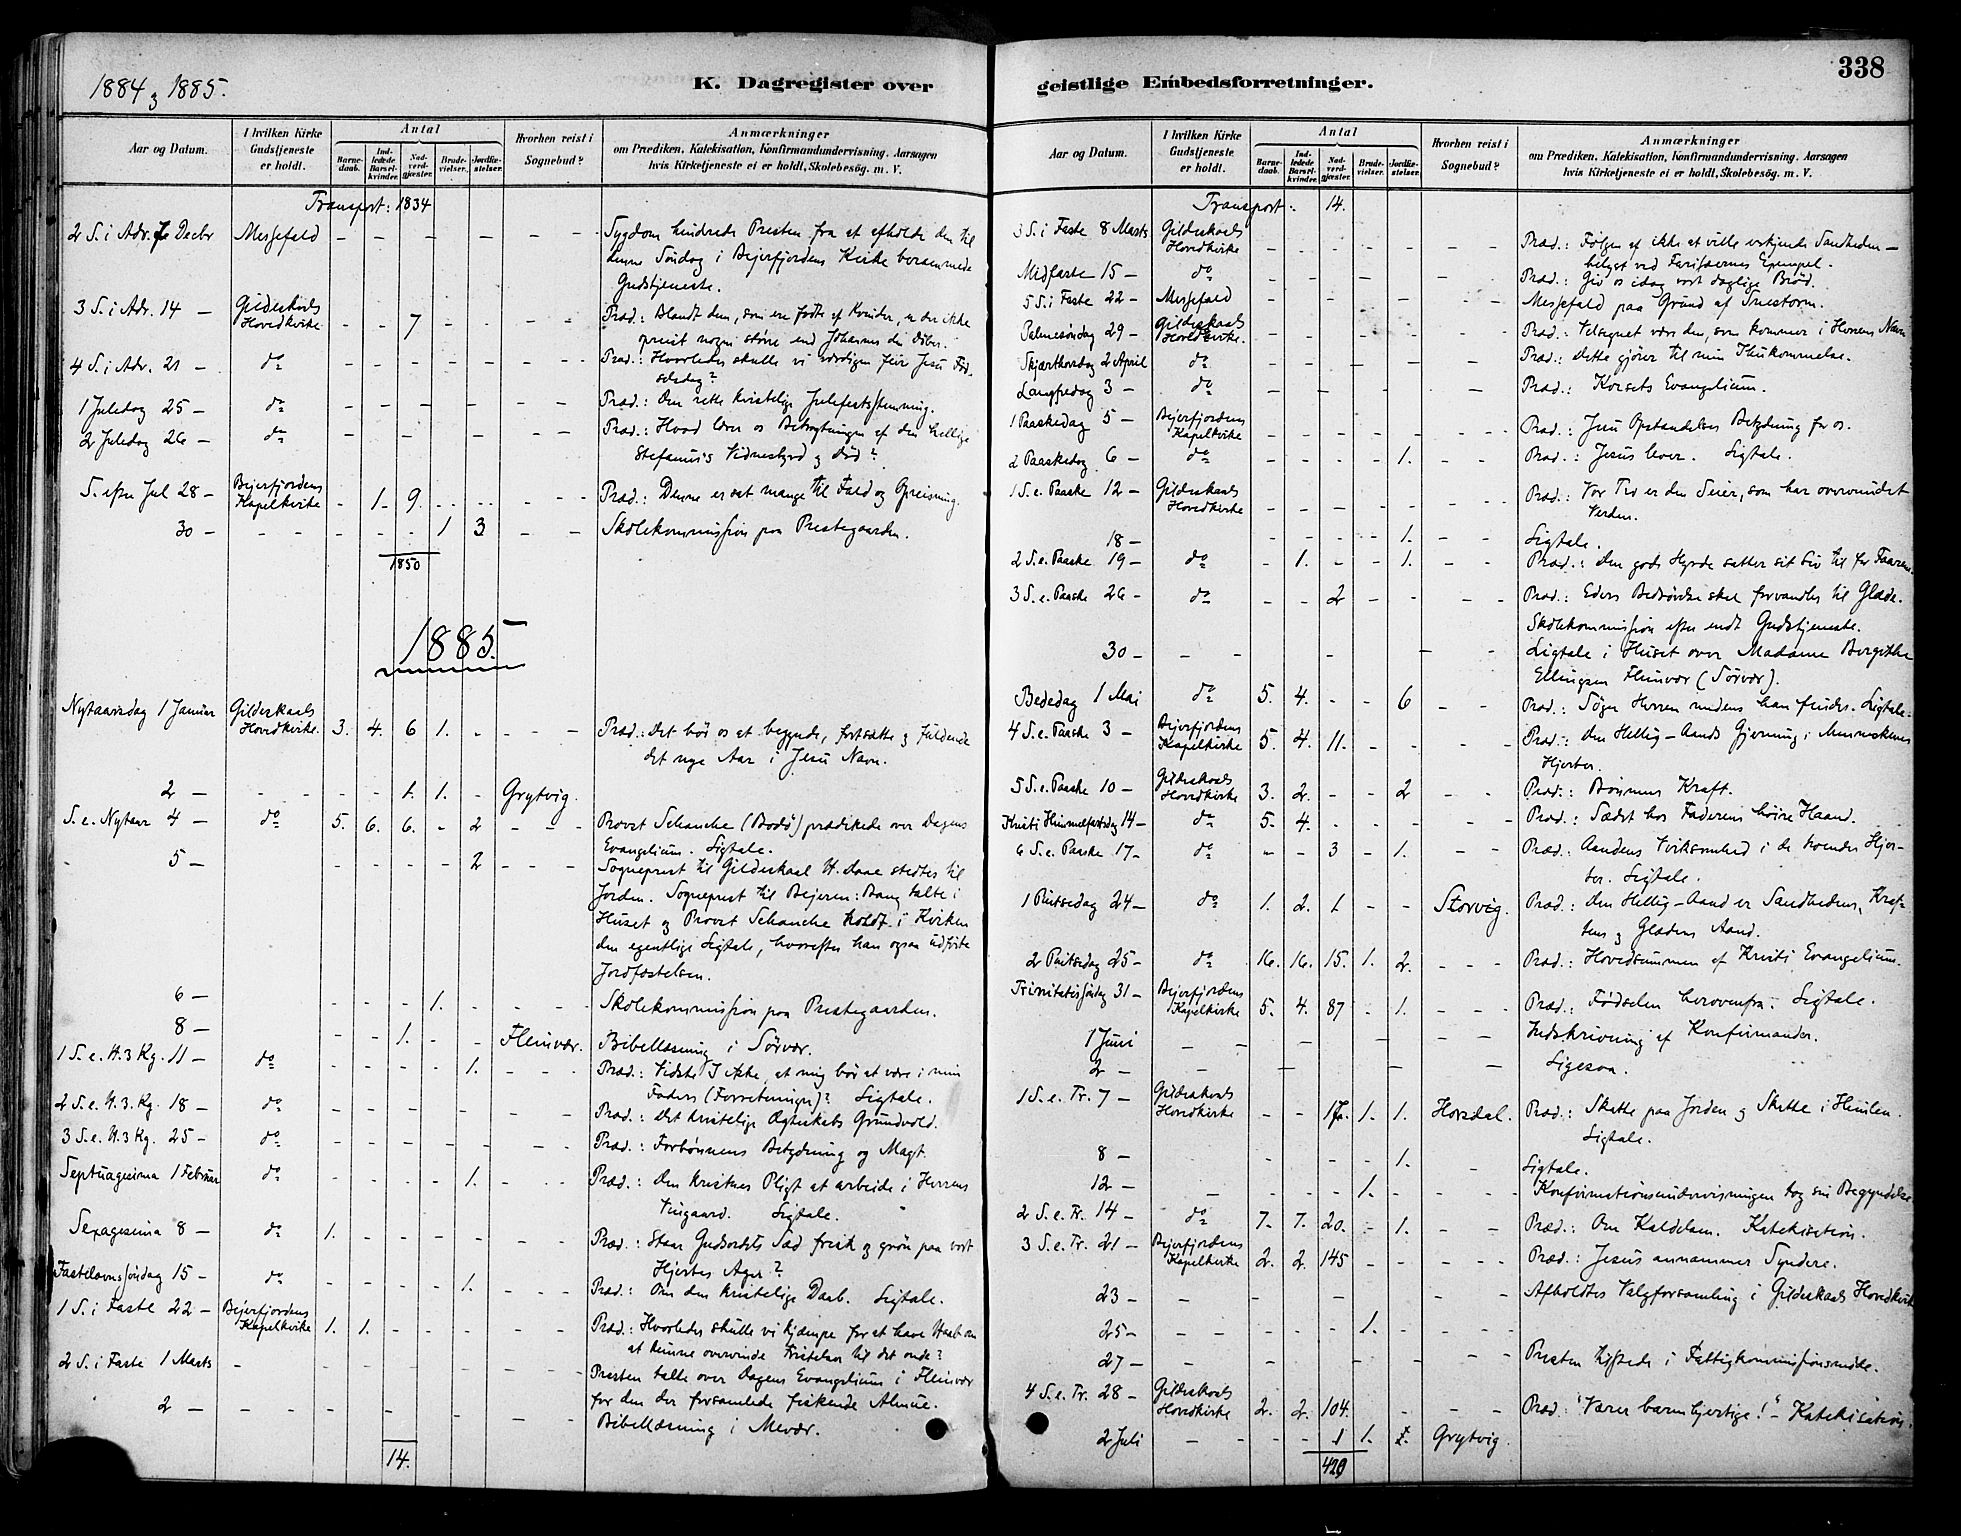 338
1884 & 1885.
K. Dagregister over
geistlige Embedsforretninger.
Aar og Datum.
I hvilken Kirke Gudstjeneste er holdt.
Antal
Barnedaab.
Indledede Barselkvinder.
Nadverdgjæster.
Brudevielser.
Jordfæstelser.
Hvorhen reist i Sognebud?
Anmærkninger
om Prædiken, Katekisation, Konfirmandundervisning, Aarsagen
hvis Kirketjeneste ei er holdt, Skolebesøg. m. V.
Transport: 1834
2 S. i Adv. 7 Decbr Messefald – – – – – – – Sygdom hindrede Presten fra at afholde den til
denne Søndag i Bejerfjordens Kirke berammede
Gudstjeneste.
3 S. i Adv. 14 – Gildeskaals Hovedkirke – – 7 – – – – Præd.: Blandt dem, som ere fødte af Kvinder, er der ikke
opreist nogen større end Johannes den Døber.
4 S. i Adv. 21 – do – – – – – – – Præd.: Hvorledes skulle vi værdigen feire Jesu Fød-
selsdag?
1 Juledag 25 – do – – – – – – – Præd.: Den rette kristelige Julefestsstemning.
2 Juledag 26 – do – – – – – – – Præd.: Hvad lærer os Betragtningen af den hellige
Stefanus's Vidnesbyrd og Død?
S. efter Jul 28 – Bejerfjordens Kapelkirke – 1. 9. – – – – Præd.: Denne er sat mange til Fald og Opreisning.
30 – – – – – – 1 3 – – Skolekommission paa Prestegaarden.
1850
1885.
Nytaarsdag 1 Januar Gildeskaals Hovedkirke. 3. 4. 6 1. – – – – Præd.: Det bør os at begynde, fortsætte og fuldende
det nye Aar i Jesu Navn.
2 – – – – – 1. 1. – Grytvig.
S. e. Nytaar 4 – do 5. 6. 6. – 2 – – – Provst Schanche (Bodø) prædikede over Dagens
Evangelium. Ligtale.
5 – – – – – 2 – – – Sogneprest til Gildeskaal H. Daae stedtes til
Jorden. Sogneprest til Bejeren: Bang talte i
Huset og Provst Schanche holdt i Kirken
den egentlige Ligtale, hvorefter han ogsaa udførte
Jordfæstelsen.
6 – – – – 1. – – – – Skolekommission paa Prestegaarden.
8 – – – 1. – – Fleinvær. Bibellæsning i Sørvær.
1 S. e. H. 3 Kg. 11 – do – – – – 1. – – – Præd.: Vidste I ikke, at mig bør at være i min
Faders (Forretninger)? Ligtale.
2 S. e. H. 3. Kg. 18 – do – – – – – – – – Præd.: Det kristelige Ægteskabs Grundvold.
3 S. e. H. 3 Kg. 25 – do – – – – – – – Præd.: Forbønnens Betydning og Magt.
Septuagesima 1 Februar do – – – – 1. – – – Præd.: Den kristnes Pligt at arbeide i Herrens
Vingaard. Ligtale.
Sexagesima 8 – do 1. – – – – – – – Præd.: Staar Gudsordets Sæd frisk og grøn paa vort
Hjertes Ager?
Fastelavnssøndag 15 – do – – – – 1. – – – Præd.: Om den kristelige Daab. Ligtale.
1 S. i Faste 22 – Bejerfjordens Kapelkirke 1. 1. – – – – – – Præd.: Hvorledes skulle vi kjæmpe for at have Haab om
at kunne overvinde Fristelser til det onde?
2 S. i Faste 1 Marts – – – – – – – – – Presten talte over Dagens Evangelium i Fleinvær
for den der forsamlede fiskende Almue.
2 – – – – – – – – – Bibellæsning i Mevær.
14.
Aar og Datum.
I hvilken Kirke Gudstjeneste er holdt.
Antal
Barnedaab.
Indledede Barselkvinder.
Nadverdgjæster.
Brudevielser.
Jordfæstelser.
Hvorhen reist i Sognebud?
Anmærkninger
om Prædiken, Katekisation, Konfirmandundervisning, Aarsagen
hvis Kirketjeneste ei er holdt, Skolebesøg. m. V.
Transport: 14.
3 S. i Faste 8 Marts Gildeskaals Hovedkirke – – – – – – – Præd.: Følgen af ikke at ville erkjende Sandheden –
belyst ved Farisæernes Exempel.
Midfaste 15 – do – – – – – – – Præd.: Giv os idag vort daglige Brød.
5 S. i Faste 22 – Messefald – – – – – – Messefald paa Grund af Snestorm.
Palmesøndag 29 – Gildeskaals Hovedkirke. – – – – – – – Præd.: Velsignet være den, som kommer i Herrens Navn
Skjærthorsdag 2 April do – – – – – – Præd.: Dette gjører til min Ihukommelse.
Langfredag 3 – do – – – – Præd.: Korsets Evangelium.
1 Paaskedag 5 – Bejerfjordens Kapelkirke – – – – – – – Præd.: Jesu Opstandelses Betydning for os.
2 Paaskedag 6 – do – – – – 1. – – Præd.: Jesus lever. Ligtale.
1 S. e. Paaske 12 – Gildeskaals Hovedkirke – – – – – – – Præd.: Vor Tro er den Seier, som har overvundet
Verden.
18 – – – – – 1. – – Ligtale.
2 S. e. Paaske 19 – do – 1. – – 1. – – Præd.: Den gode Hyrde sætter sit Liv til for Faarene.
3 S. e. Paaske 26 – do – – 2 – – – – Præd.: Eders Bedrøvelse skal forvandles til Glæde.
Skolekommission efter endt Gudstjeneste.
30 – – – – – – Ligtale i Huset over Madame Bergithe
Ellingsen Fleinvær (Sørvær).
Bededag 1 Mai do 5. 4. – – 6 – – Præd.: Søger Herren medens han findes. Ligtale.
4 S. e. Paaske 3 – Bejerfjordens Kapelkirke 5. 4. 11. – – – – Præd.: Den Hellig-Aands Gjerning i Menneskenes
Hjerter.
5 S. e. Paaske 10 – Gildeskaals Hovedkirke 3. 2. – – 2 – – Præd.: Bønnens Kraft.
Kristi Himmelfartsdag 14 – do 5. 4. Præd.: Sædet hos Faderens høire Haand.
6 S. e. Paaske 17 – do – – 3 – 1. – – Præd.: Aandens Virksomhed i de troendes Hjer-
ter. Ligtale.
1 Pintsedag 24 – do 1. 2. 1. – – Storvig. Præd.: Den Hellig-Aand er Sandhedens, Kraf-
tens og Glædens Aand.
2 Pintsedag 25 – do 16. 16. 15. 1. 2. – – – Præd.: Hovedsummen af Kristi Evangelium.
Trinitatissøndag 31 – Bejerfjordens Kapelkirke 5. 4. 87 – 1. – – – Præd.: Fødselen herovenfra. Ligtale.
1 Juni – – – – – – Indskrivning af Konfirmander.
2 – – – – – Ligesaa.
1 S. e. Tr. 7 – Gildeskaals Hovedkirke – – 17. 1. 1. Horsdal. Præd.: Skatte paa Jorden og Skatte i Himlen.
Ligtale.
8 – – – – – 1. – Ligtale.
12 – – – – – 1. – – – Konfirmationsundervisningen tog sin Begyndelse
2 S. e. Tr. 14 – do 7. 7. 20. – 1. – – Præd.: Om Kaldelsen. Katekisation.
3 S. e. Tr. 21 – Bejerfjordens Kapelkirke 2. 2. 145 – – – – Præd.: Jesus annammer Syndere.
23 – – – – – – – – Afholdtes Valgforsamling i Gildeskaals Hovedkirke
25 – – – – – – 1. – – –
27 – – – – – – – Presten tilstede i Fattigkommissionsmøde.
4 S. e. Tr. 28 – Gildeskaals Hovedkirke 2. 2. 104. – – – Præd: "Værer barmhjertige!" – Katekisation.
2 Juli – – – 1 1. Grytvig.
420